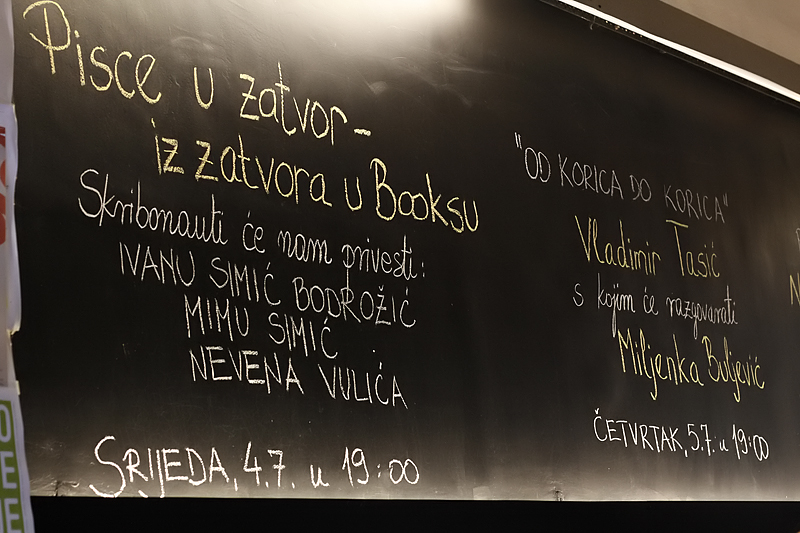 Pisce u zatvor-
iz zatvora u Booksu
Skribonauti će nam privesti:
IVANU SIMIĆ BODROŽIĆ
MIMU SIMIĆ
NEVENA VULIĆA
SRIJEDA, 4.7. u 19:00
"OD KORICA DO KORICA"
Vladimir Tasić
s kojim će razgovarati
Miljenka Buljević
ČETVRTAK, 5.7. u 19:00